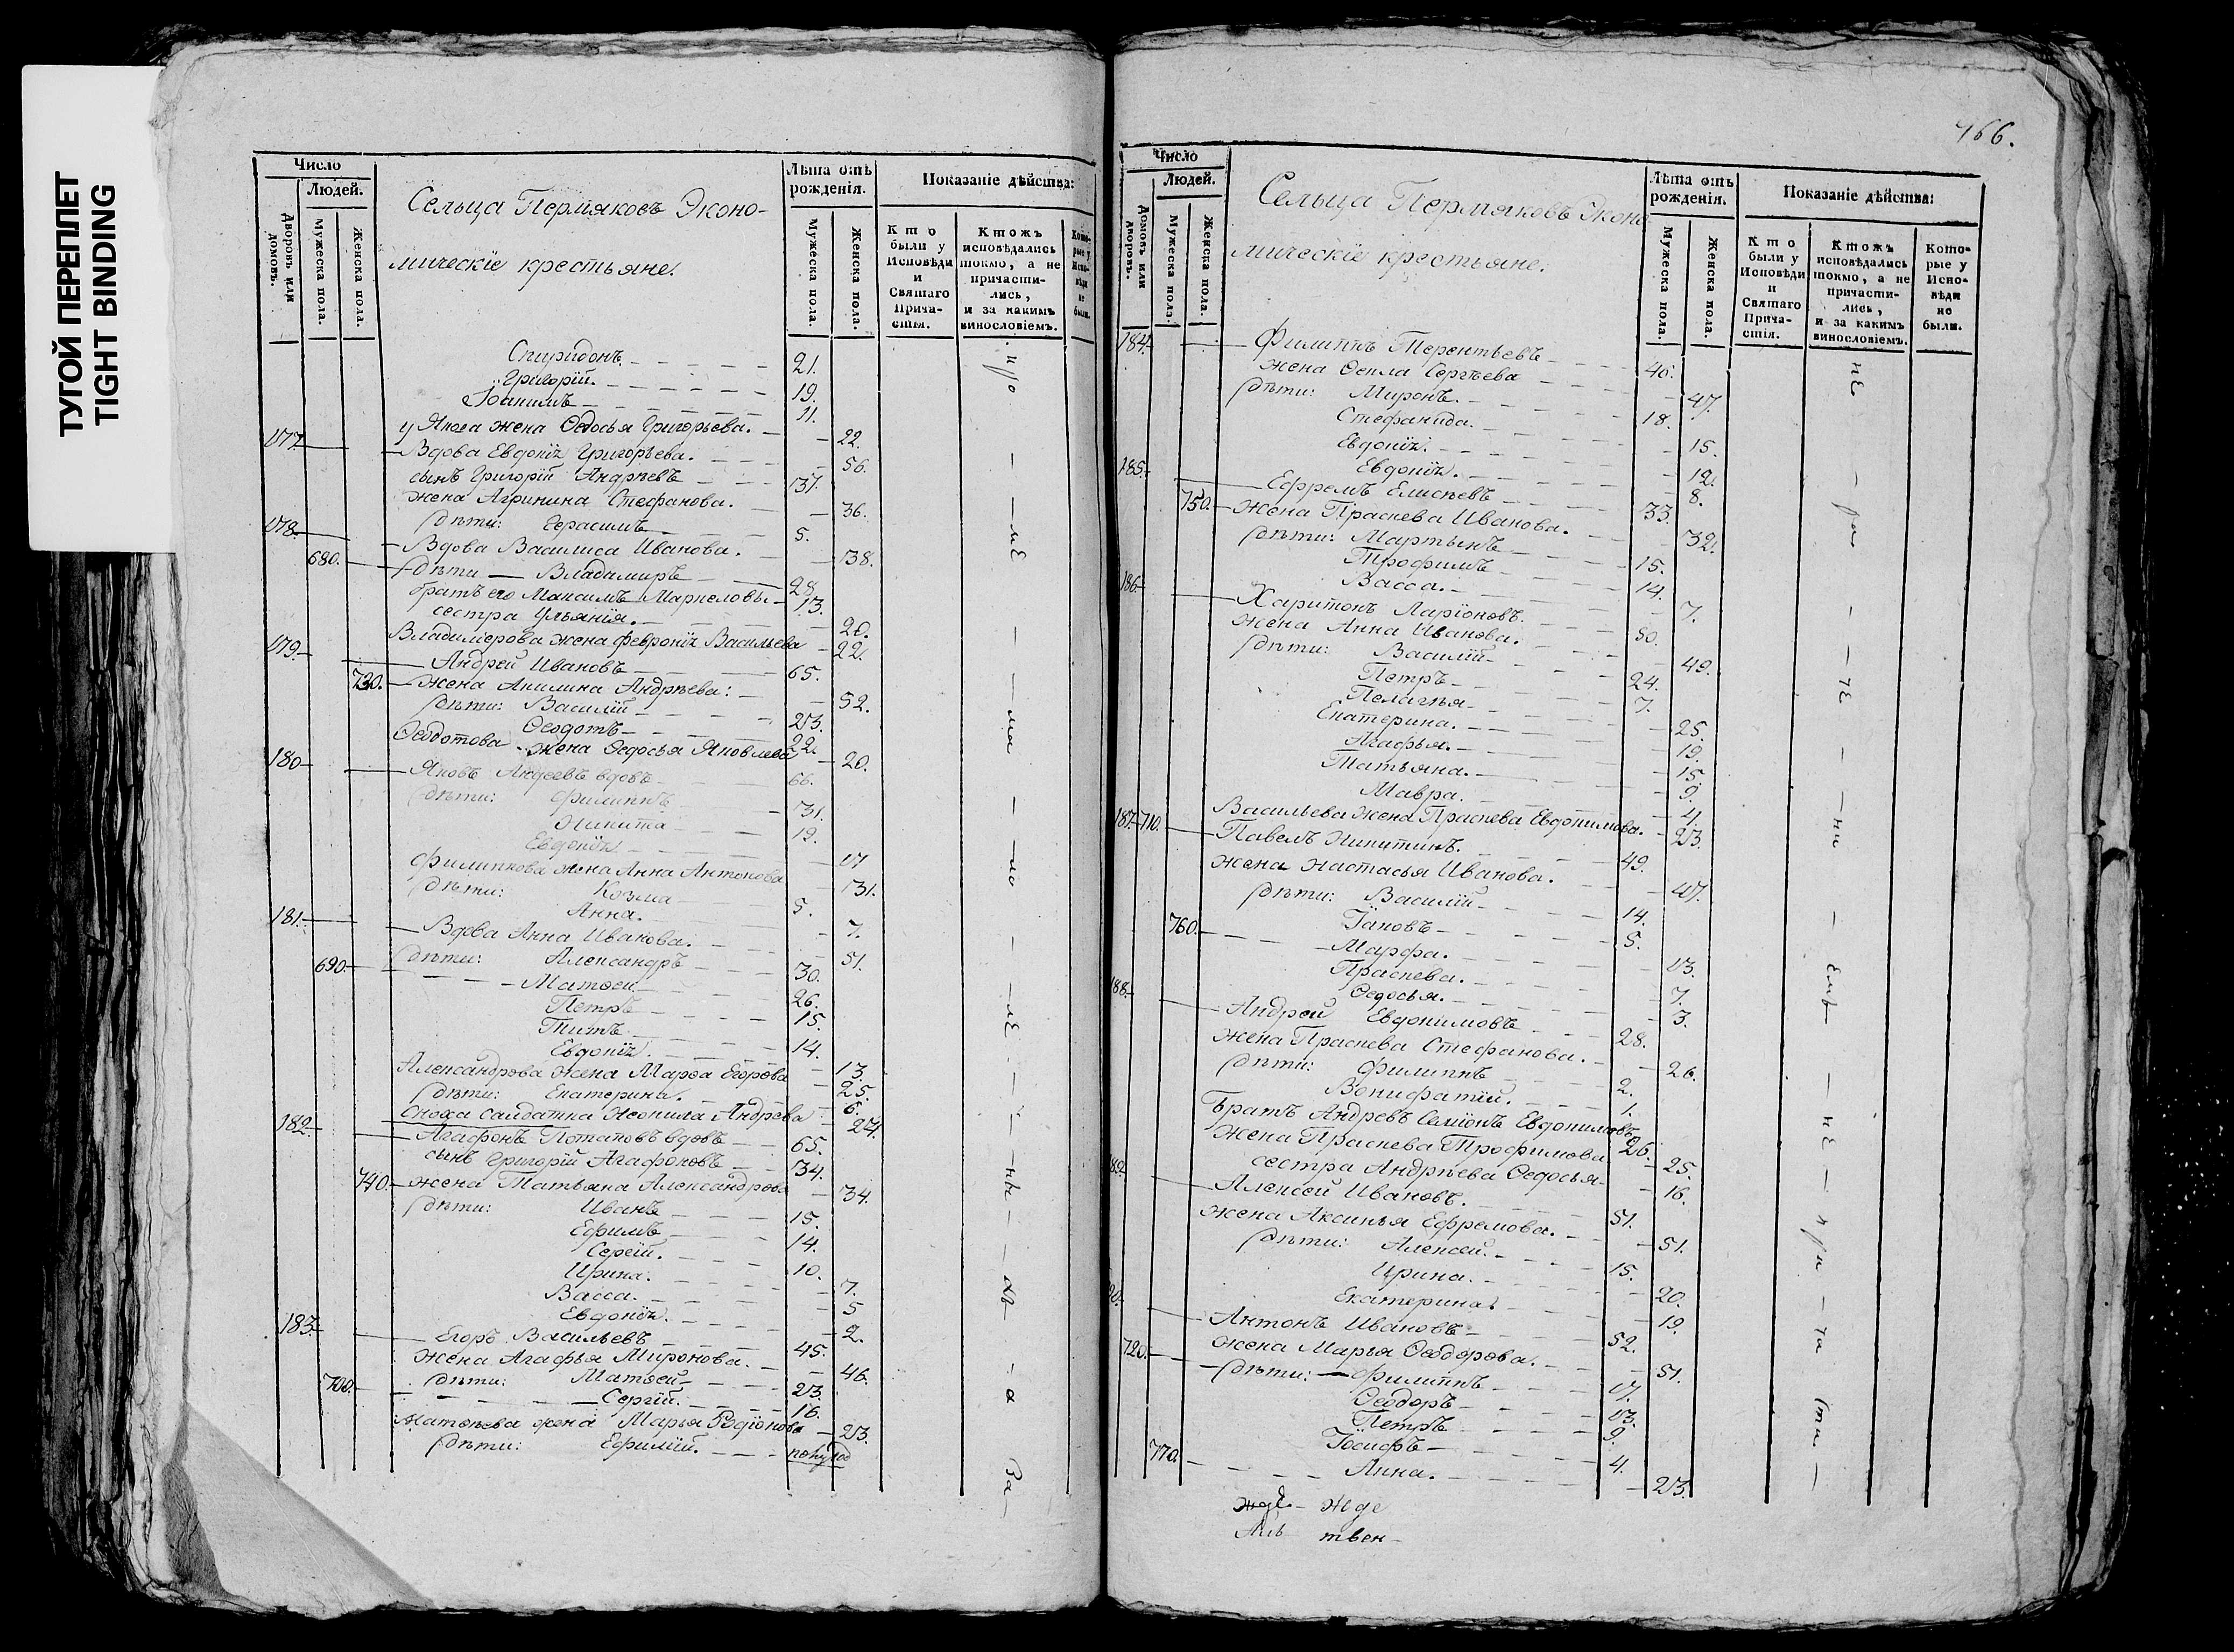 ТУГОЙ ПЕРЕПЛЕТ
TIGHT BINDING
Число
Людей.
Дворовъ или домовъ.
Мужеска пола.
Женска пола.
Сельца Пермяковъ Эконо-
мическіе крестьяне.
Лѣта отъ рожденія.
Мужеска пола.
Женска пола.
Показаніе дѣйства:
Кто были у Исповѣди и Святаго Причастія.
Ктожъ исповѣдались токмо, а не причастились, и за какимъ винословіемъ.
Которые у Исповѣди не были.
Спиридонъ. 21.
Григорій. 19.
Іоакимъ 11.
у Якова жена Ѳедосья Григорьева. 22.
177. Вдова Евдокія Григорьева. 56.
сынъ Григорій Андрѣевъ 37.
жена Агрипина Стефанова. 36.
дѣти: Герасимъ 5.
178. Вдова Василиса Иванова. 38.
680. дѣти Владимиръ 28
братъ его Максимъ 13.
сестра Ульянія. 20.
Владимерова жена Февронія Васильева 22.
179. Андрей Ивановъ 65.
730. жена Акилина Андрѣева: 52.
дѣти: Василій 23.
Ѳеодотъ 22.
Ѳеодотова жена Ѳедосья Яковлева 20.
180 Яковъ Андреевъ вдовъ 66.
дѣти: Филиппъ 31.
Никита 19.
Евдокія 17
Филиппова жена Анна Антонова 31.
дѣти: Козма 5.
Анна. 7.
181. Вдова Анна Иванова. 51.
дѣти: Александръ 30.
690. Матѳей 26.
Петръ 15.
Титъ 14.
Евдокія. 13.
Александрова жена Марѳа Егорова 25.
дѣти: Екатерина. 6.
сноха салдатка Неонила Андрѣева 24.
182. Агафонъ Потаповъ вдовъ 65.
сынъ Григорій Агафоновъ 34.
740. жена Татьяна Александрова 34.
дѣти: Иванъ 15.
Ефимъ 14.
Сергій. 10.
Ирина. 7.
Васса. 5
Евдокія. 2.
183. Егоръ Васильевъ 45.
жена Агафья Миронова. 46.
дѣти: Матѳей 23.
700. Сергій. 16.
Матѳеева жена Марья Родіонова 23.
дѣти: Ефимій. полугод
466.
Число
Людей.
Домовъ или дворовъ.
Мужеска пола.
Женска пола.
Сельца Пермяковъ Эконо
мическіе крестьяне.
Лѣта отъ рожденія.
Мужеска пола.
Женска пола.
Показаніе дѣйства:
Кто были у Исповѣди и Святаго Причастія.
Ктожъ исповѣдались токмо, а не причастились, и за какимъ винословіемъ.
Которые у Исповѣди не были.
184. Филиппъ Терентьевъ 46.
жена Ѳекла Сергѣева 47.
дѣти: Миронъ. 18.
Стефанида. 15.
Евдокія. 12.
Евдокія. 8.
185. Ефремъ Елисѣевъ 33.
750. жена Праскева Иванова. 32.
дѣти: Мартынъ 15.
Трофимъ 14.
Васса. 7.
186. Харитонъ Ларіоновъ. 50.
жена Анна Иванова. 49.
дѣти: Василій 24.
Петръ 7.
Пелагѣя 25.
Екатерина. 19.
Агафья. 15.
Татьяна. 9.
Мавра. 4.
Васильева жена Праскева Евдокимова. 23.
187. 710. Павелъ Никитинъ. 49.
жена Настасья Иванова. 47.
дѣти: Василій 14.
Іаковъ 5.
760. Марфа. 13.
Праскева. 7.
Ѳедосья. 3.
188. Андрей Евдокимовъ 28.
жена Праскева Стефанова. 26.
дѣти: Филиппъ 2.
Вонифатій. 1.
Братъ Андревъ Семіонъ Евдокимовъ 26.
жена Праскева Трофимова 25.
сестра Андрѣева Ѳедосья 16.
189. Алексей Ивановъ. 51.
жена Аксинья Ефремова. 51.
дѣти: Алексей. 15.
Ирина. 20.
Екатерина. 19.
Антонъ Ивановъ 52.
жена Марья Ѳеодорова. 51.
720. дѣти: Филиппъ 17.
Ѳеодоръ 13.
Петръ 9.
Іосифъ 4.
770. Анна. 23.